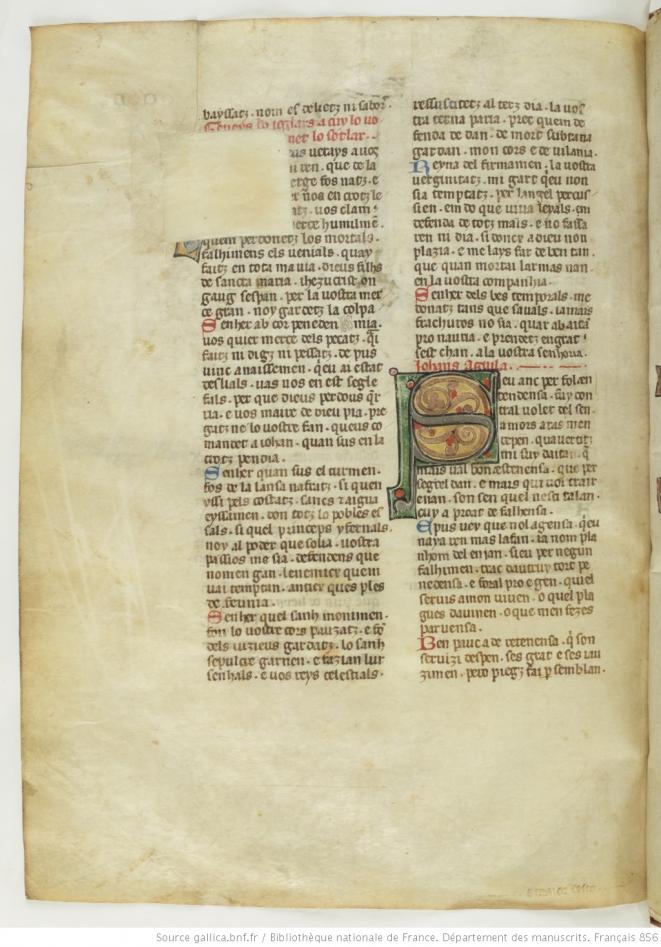 bayssatz · nom es delietz ni sabor ·
net lo sotlar ·
quem perdonetz los mortals ·
falhimens els venials · quay
faitz en tota ma uia · dieus filhs
de sancta maria · ihezu crist on
gaug sespan · per la uostra mer
ce gran · noy gardetz la colpa
Senher ab cor peneden mia ·
uos quier merce dels pecatz · qi
faitz ni digz ni pessatz · de pus
uinc a naissemen · qeu ai estat
deslials · uas uos en est segle
fals · per que dieus perdous qr
ria · e uos maire de dieu pia · pre
gatz ne lo uostre fan · queus co
mandet a iohan · quan fus en la
crotz pendia ·
Senher quan fus el turmen ·
fos de la lansa nafratz · si quen
yssi pels costatz · sancs e aigua
eyssamen · don totz lo pobles es
sals · si quel princeps yfernals ·
noy al poder que solia · uostra
passios me sia · defendens que
nomen gan · lenemicx quem
uai temptan · anticx ques ples
de feunia ·
Senher quel sanh monimen ·
fon lo uostre cors pauzatz · e fo
dels iuzieus gardatz · lo sanh
sepulcre garnen · e fazian lur
senhals · e uos reys celestials ·
ressuscitetz al tertz dia · la uos
tra terna patria · prec quem de
fenda de dan · de mort subtana
gardan · mon cors e de uilania ·
Reyna del firmamen · la uostra
uerginitatz · mi gart qeu non
sia temptatz · per langel percus
sien · em do que uiua leyals · em
defenda de totz mals · e no fassa
ren ni dia · si donc x a dieu non
plazia · e me lays far de ben tan ·
que quan mortai larmas nan ·
en la uostra companhia ·
Senher dels bes temporals · me
donatz tans que sauals · iamais
frachuros no sia · quar abaita
pro nautia · e prendetz en grat
sest chan · a la uostra senhoria ·
Iohans Aguila ·
Seu anc per fol aten
dendensa · fuy con
tral uolet del sen ·
amors aras men
repen · qua uertutz
mi suy daitan · q
mais ual bonastenensa · que per
segre dan · e mais qui uoi trair
enan · son sen quel nesci talan ·
cuy a proat de falhensa ·
Epus uey que nol agensa · qeu
naya ren mas lafan · ia nom pla
nhom del enian · sieu per negun
falhimen · trac dautruy tort pe
nedensa · e foral pro e gen · quiel
seruis a mon uiuen · o quel pla
gues dauinen · o que men fezes
paruensa ·
Ben pauca de retenensa · q son
seruizi despen · ses grat e ses iau
zimen · pero pregz fai p semblan ·
Source gallica.bnf.fr / Bibliothèque nationale de France. Département des manuscrits. Français 856